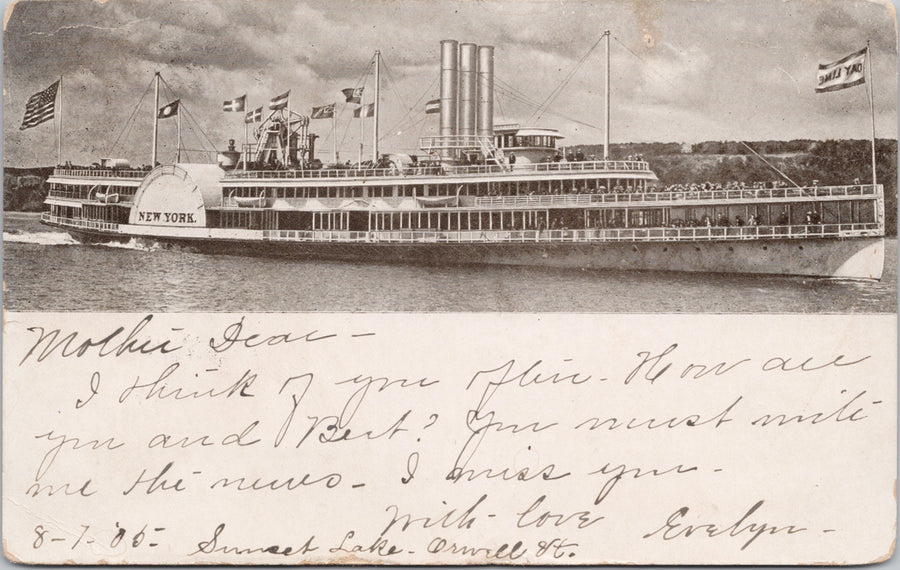 DAY LINE
NEW YORK.
Mother Dear -
I think of you often. How are
you and Bert? You must write
me the news - I miss you -
With - love Evelyn -
8-7-'05- Sunset Lake - Orwell Vt.